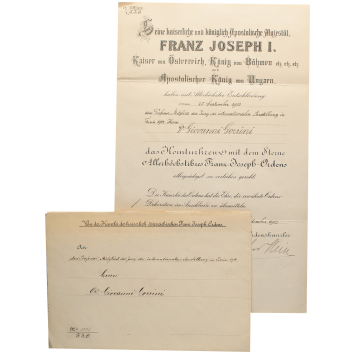 Seine kaiserliche und königlich Apostolische Majestät,
FRANZ JOSEPH I.
Kaiser von Österreich, König von Böhmen etc, etc, etc
und
Apostolischer König von Ungarn,
haben mit Allerhöchster Entschließung
vom 25. September 1902
dem Mitglied der Jury der internationalen Ausstellung in
Herrn
Dr Giovanni Gorrini
das Komturkreuz mit dem Sterne
Allerhöchstihres Franz-Joseph-Ordens
allergnädigst zu verleihen geruht.
Die Kanzlei des Ordens hat die Ehre, die
Dekoration im Anschlusse zu übermitteln.
1902
Von der Kanzlei des kaiserlich österreichischen Franz Joseph-Ordens.
An
Mitglied der Jury der internationalen Ausstellung in
Herrn
Dr Giovanni Gorrini